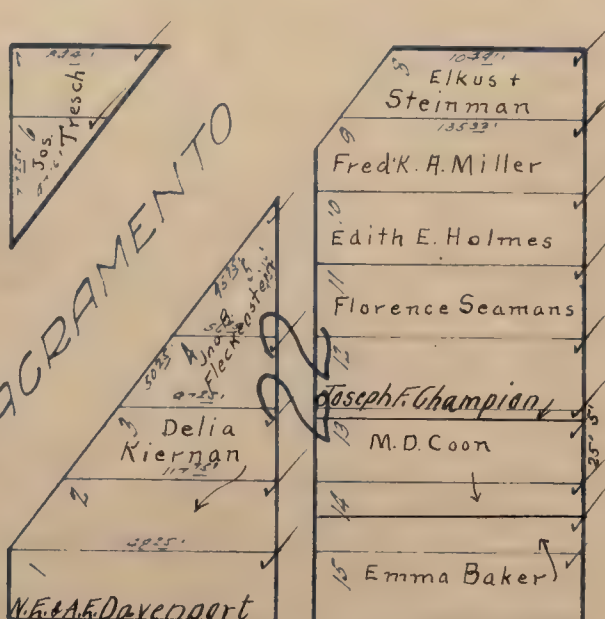 7
6
Jos.
Treschl
SACRAMENTO
5
4
Jno. B.
Fleckenstein
50 75'
3
Delia
Kiernan
2
1
N.E. & A.E. Davenport
22
8
Elkus +
Steinman
9
Fred'k. A. Miller
10
Edith E. Holmes
11
Florence Seamans
12
Joseph F. Champion
5'
13
M. D. Coon
25'
14
15
Emma Baker